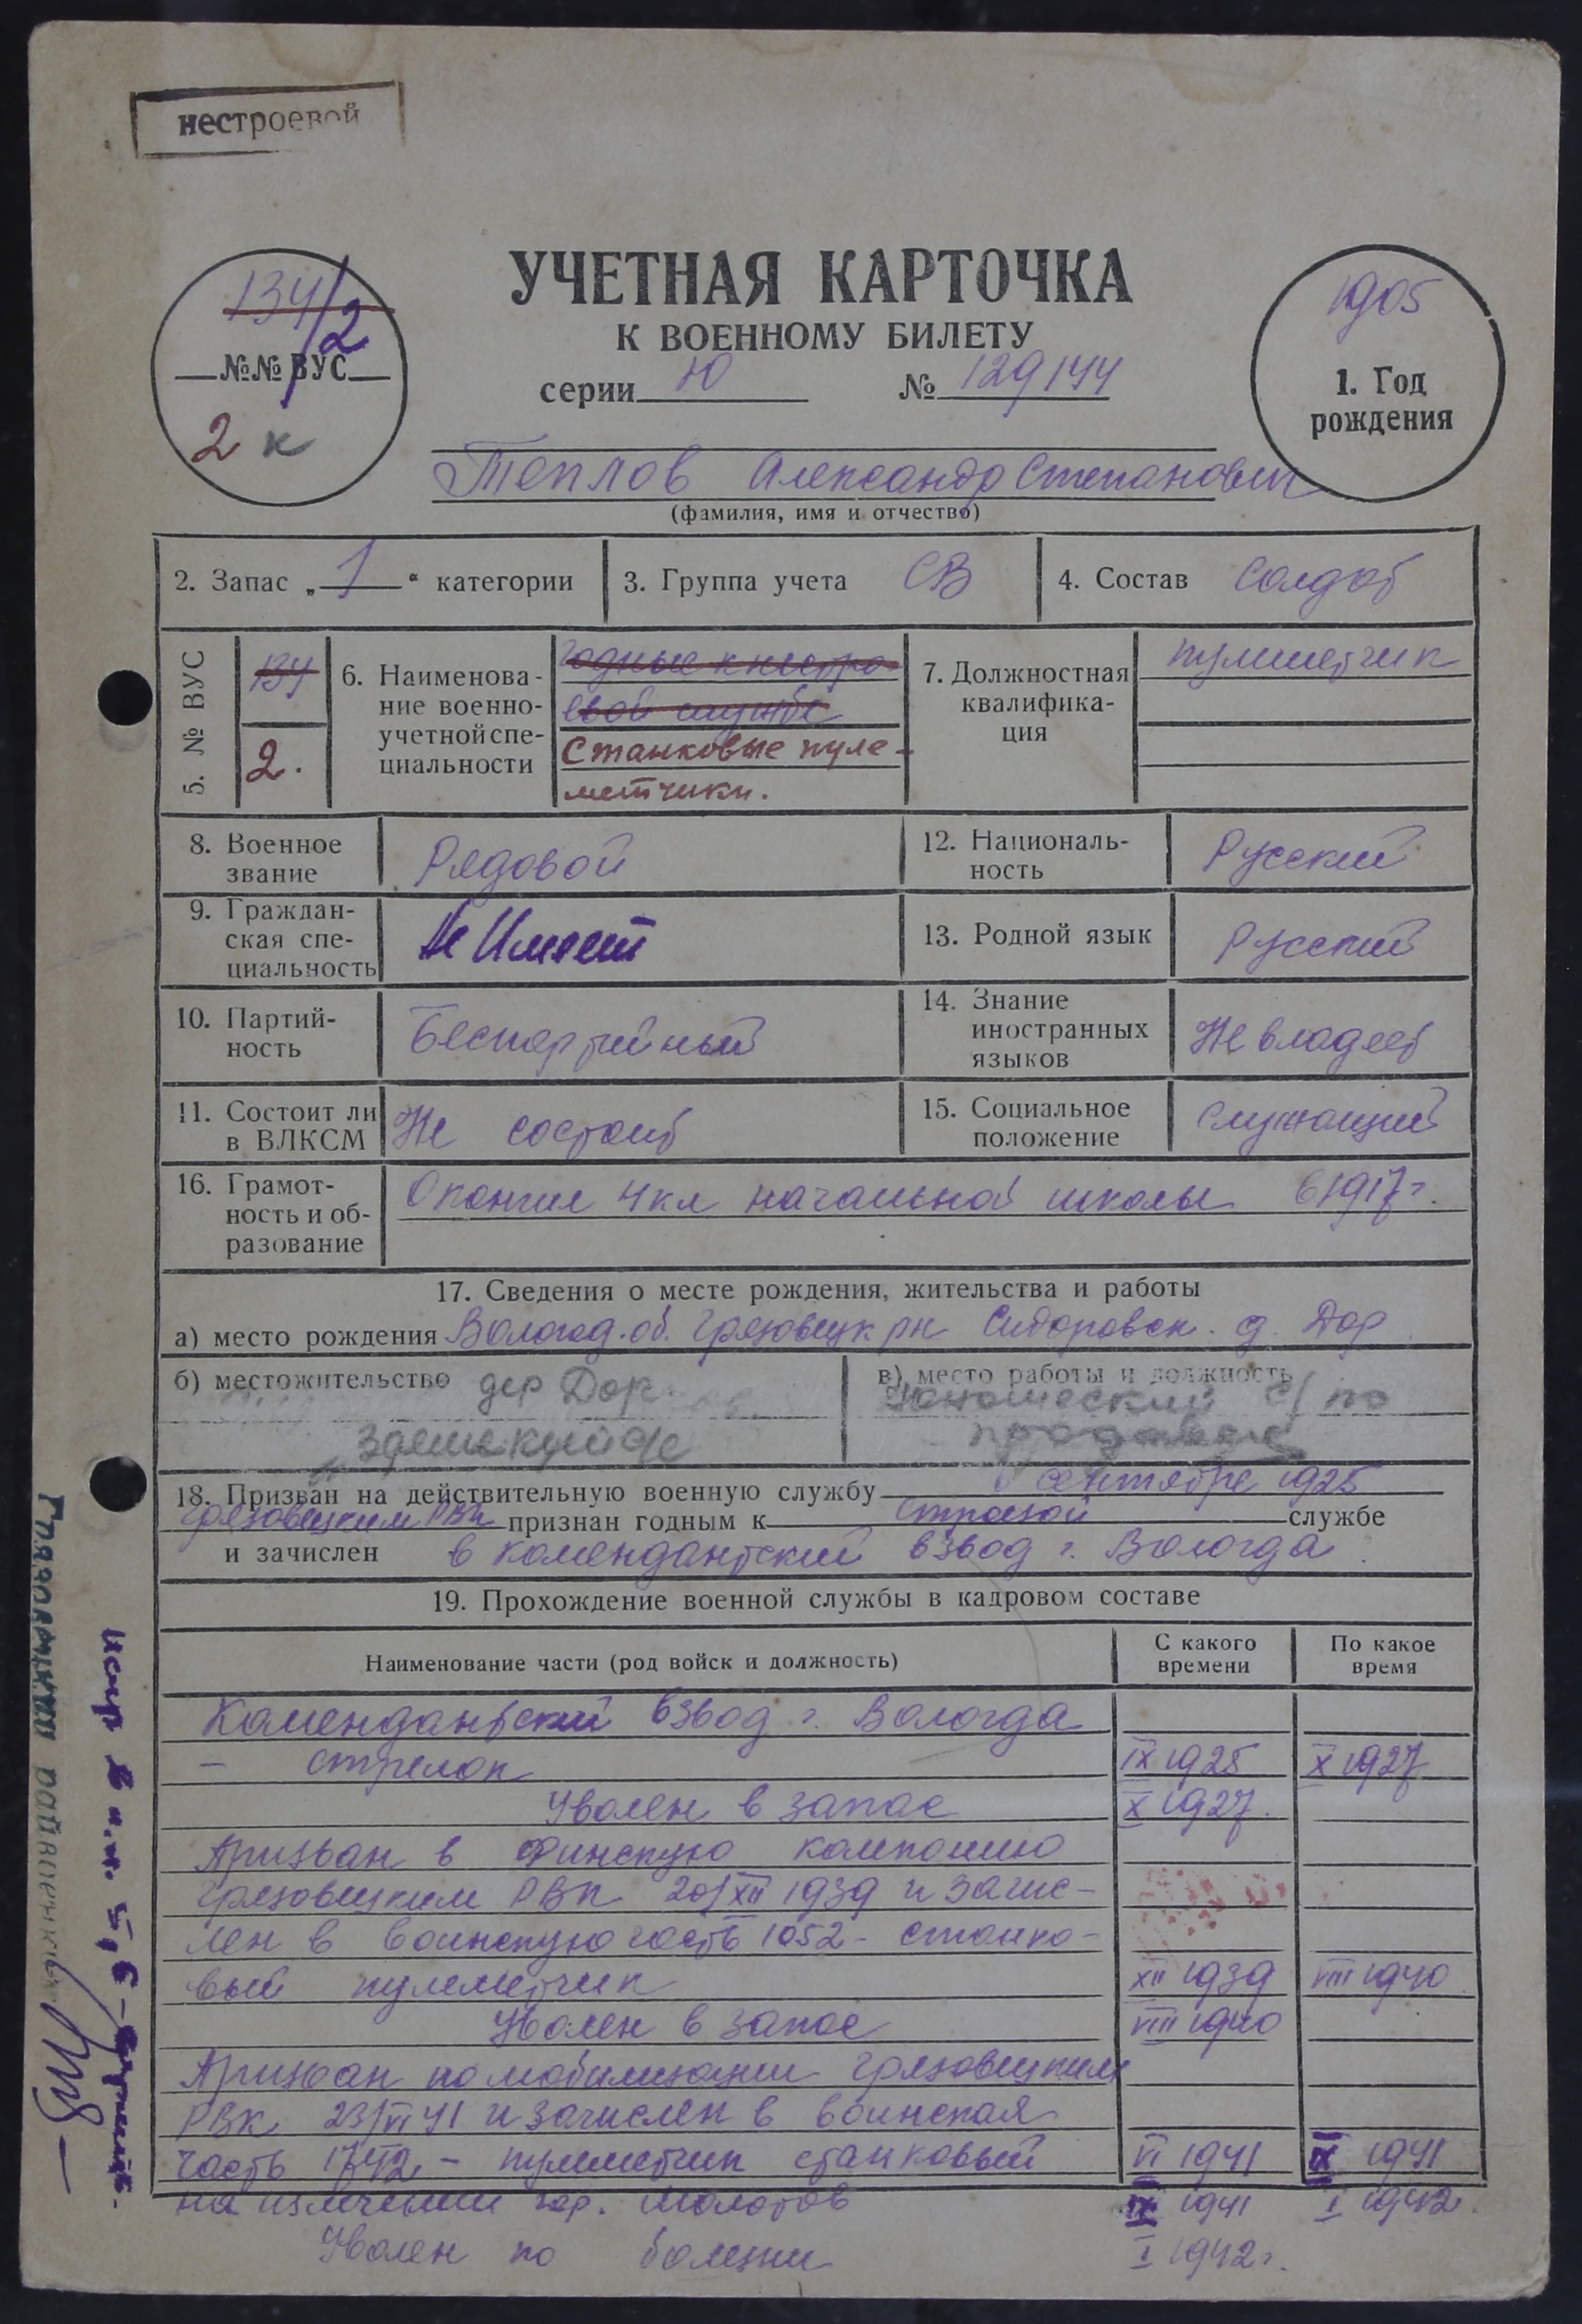 нестроевой
134/2
№№ ВУС
2 к
УЧЕТНАЯ КАРТОЧКА
К ВОЕННОМУ БИЛЕТУ
серии Ю № 129144
1905
1. Год
рождения
Теплов Александр Степанович
(фамилия, имя и отчество)
2. Запас „ 1 “ категории
3. Группа учета СВ
4. Состав Солдат
5. № ВУС
134
2.
6. Наименова-
ние военно-
учетной спе-
циальности
годные к нестро-
евой службе
Станковые пуле-
метчики.
7. Должностная
квалифика-
ция
пулеметчик
8. Военное
звание
Рядовой
12. Националь-
ность
Русский
9. Граждан-
ская спе-
циальность
Не Имеет
13. Родной язык
Русский
10. Партий-
ность
Беспартийный
14. Знание
иностранных
языков
Не владеет
11. Состоит ли
в ВЛКСМ
Не состоит
15. Социальное
положение
Служащий
16. Грамот-
ность и об-
разование
Окончил 4 кл начальной школы в 1917 г.
17. Сведения о месте рождения, жительства и работы
а) место рождения Вологод. об. Грязовецк рн Сидоровск. д. Дор
б) местожительство дер Дор
в) место работы и должность
с/по
продавец
18. Призван на действительную военную службу в сентябре 1925
Грязовецким РВК признан годным к строевой службе
и зачислен в комендантский взвод г. Вологда
19. Прохождение военной службы в кадровом составе
Наименование части (род войск и должность)
С какого
времени
По какое
время
Комендантский взвод г. Вологда
- стрелок IX 1925 X 1927
Уволен в запас X 1927.
Призван в Финскую компанию
Грязовецким РВК 20/XII 1939 и зачис-
лен в воинскую часть 1052 - станко-
вый пулеметчик XII 1939 VIII 1940
Уволен в запас VIII 1940
Призван по мобилизации Грязовецким
РВК 23/VI 41 и зачислен в воинская
часть 1742 - пулеметчик станковый VI 1941 IX 1941
на излечении гор. Молотов IX 1941 I 1942.
Уволен по болезни I 1942 г.
Грязовецкий райвоенком